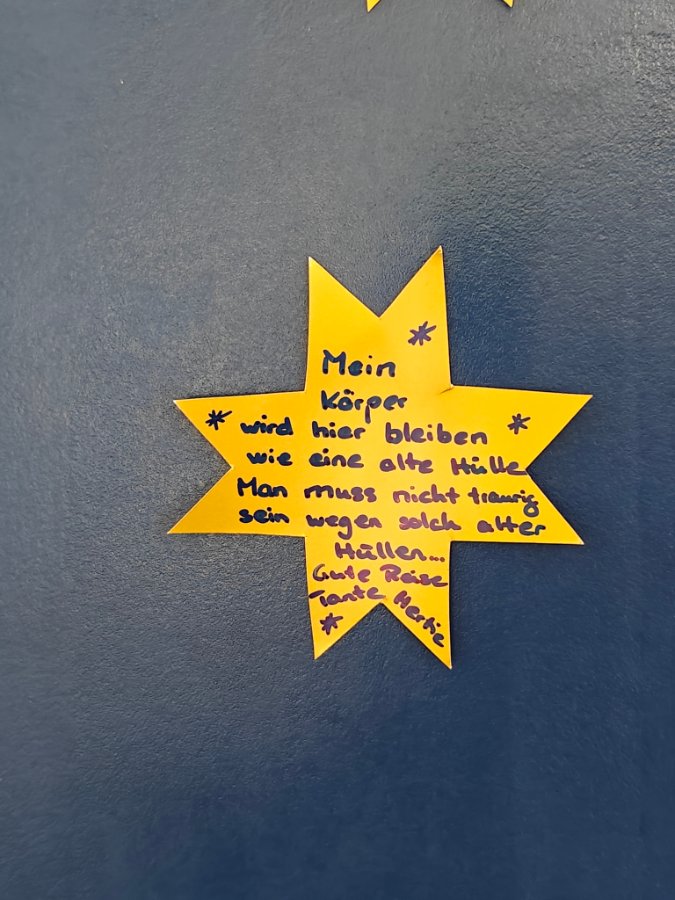 Mein
Körper
wird hier bleiben
wie eine alte Hülle
Man muss nicht traurig
sein wegen solch alter
Hüllen...
Gute Reise
Tante Hertie